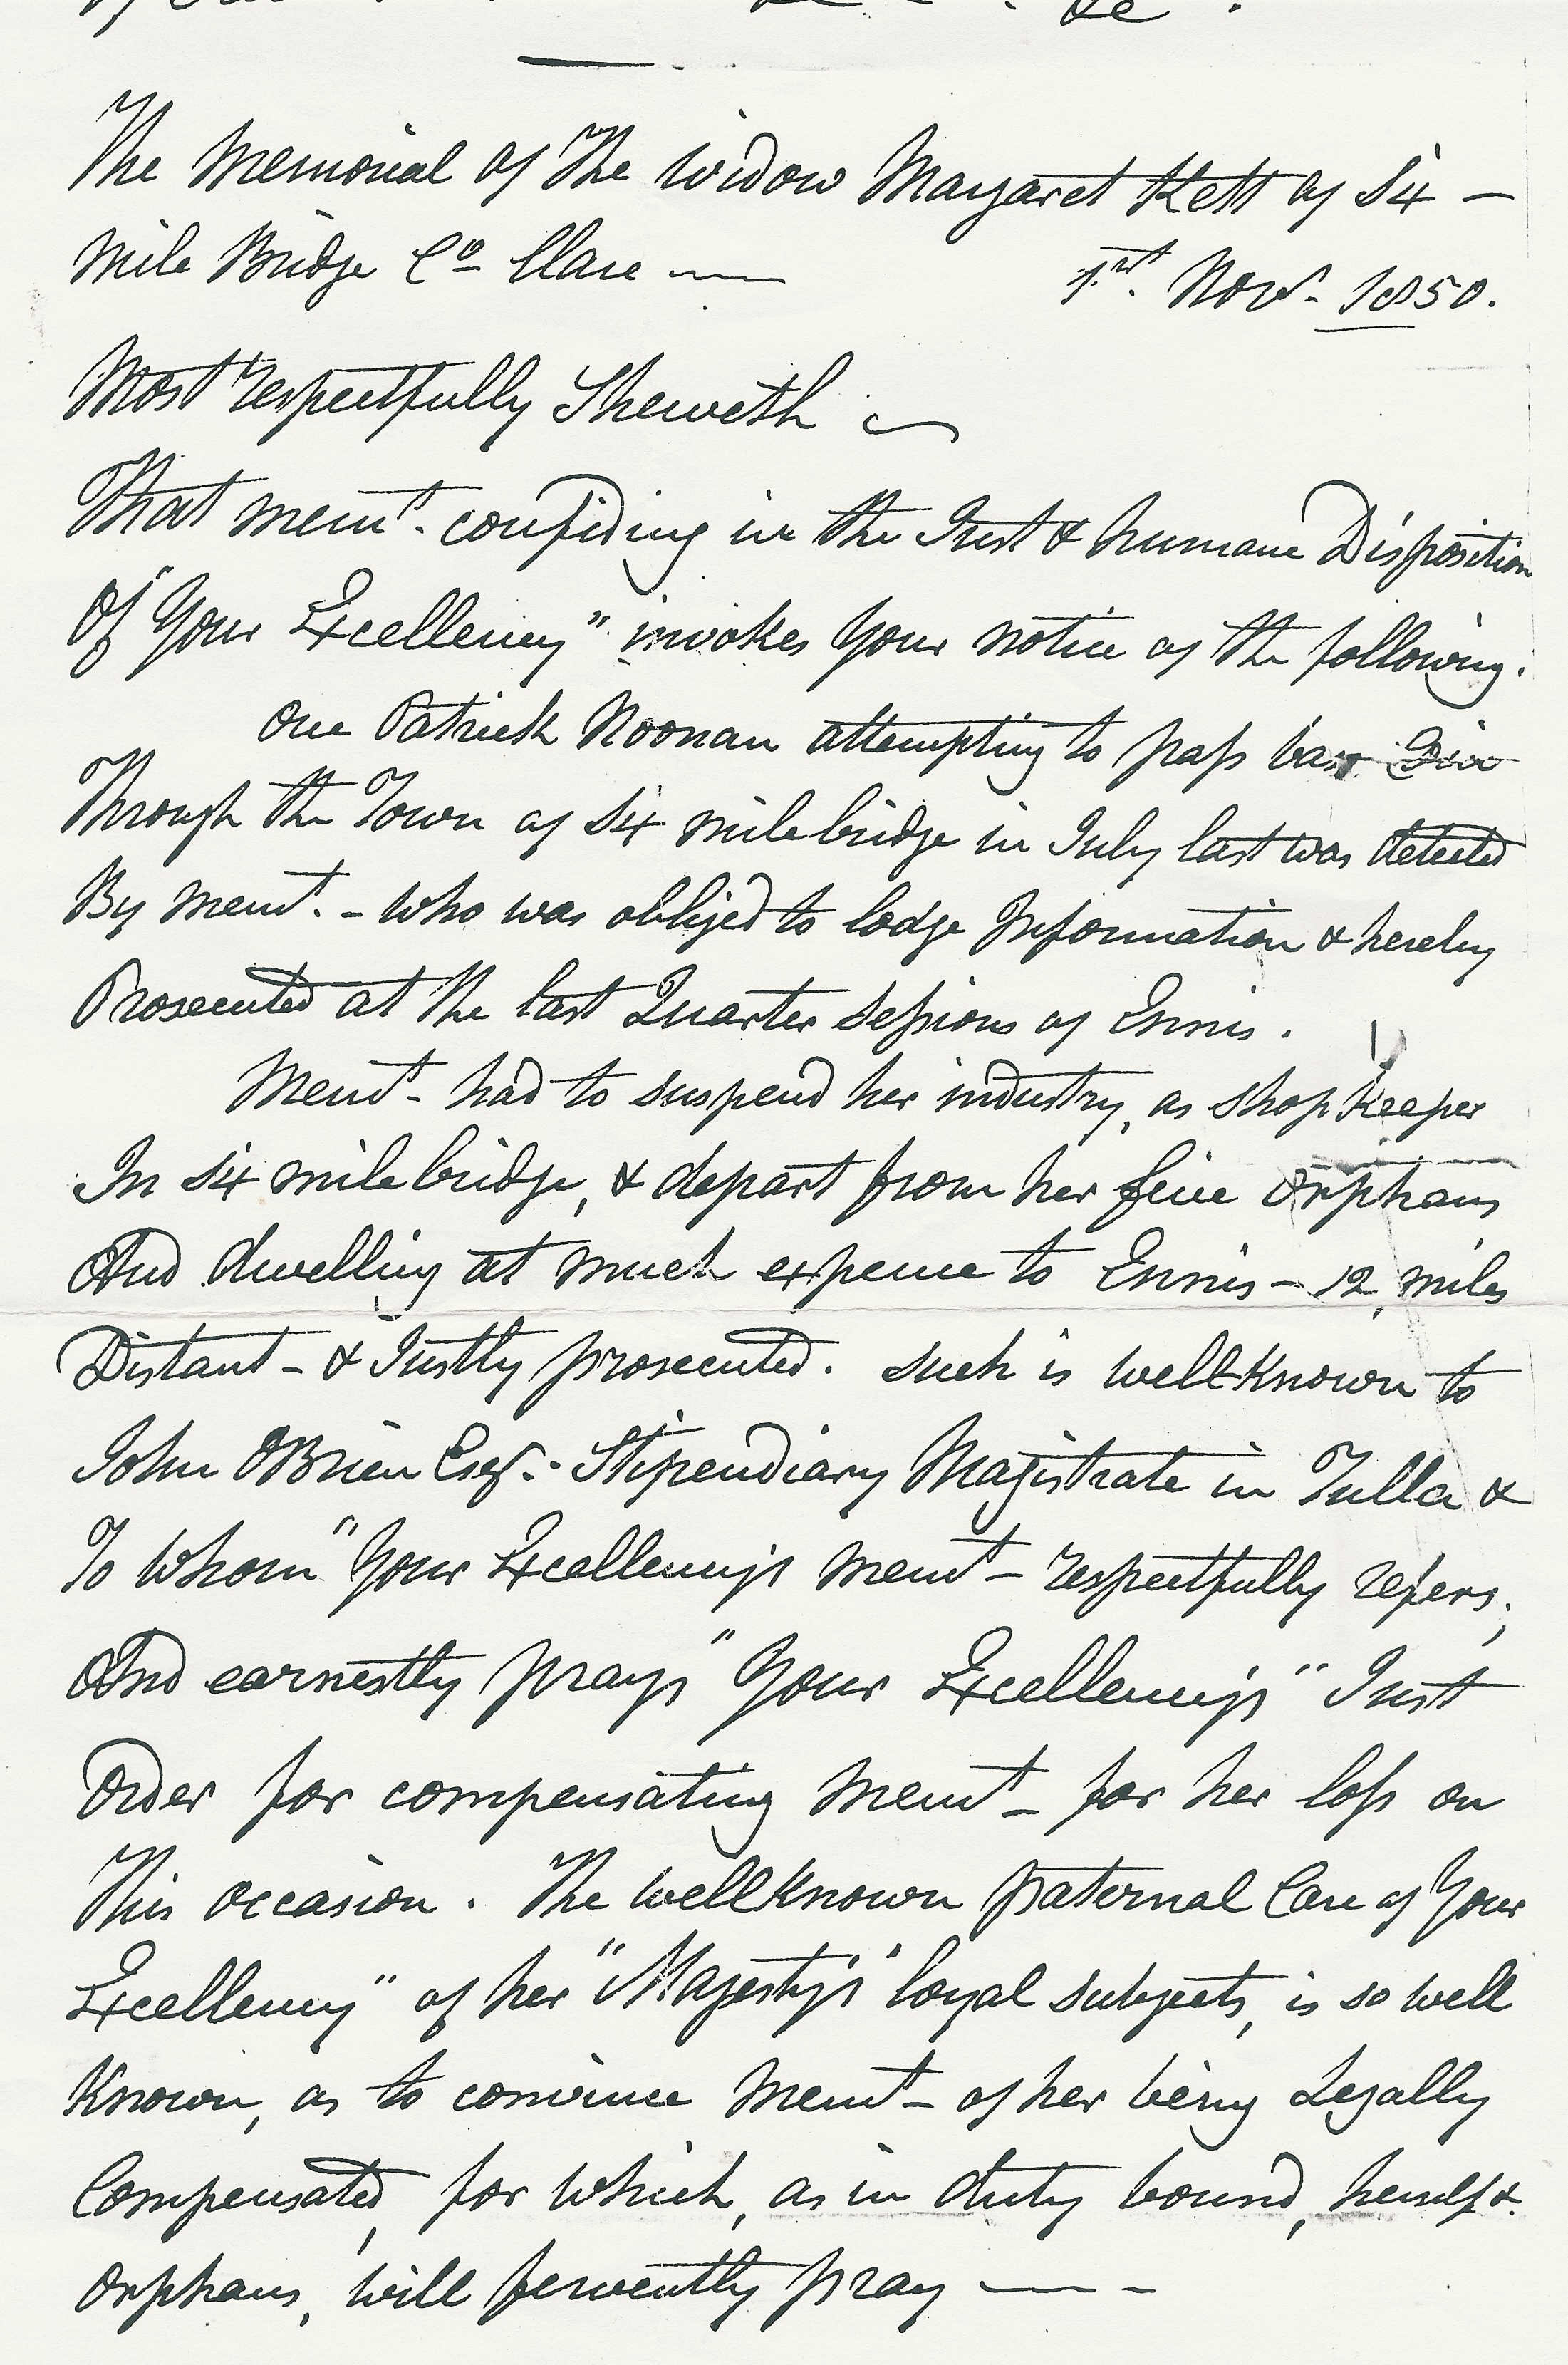 The Memorial of The Widow Margaret Kett of Six —
Mile Bridge Co Clare —
1st. Novr - 1850.
Most respectfully Sheweth
That memt. confiding in the Just & humane Disposition
Of "Your Excellency" invokes Your notice of the following.
One Patrick Noonan attempting to pass bad
Through the Town of Six milebridge in July last was detected
By memt. - who was obliged to lodge Information & hereby
Prosecuted at the last Quarter Sessions of Ennis.
Memt - had to suspend her industry, as shopkeeper
In Six milebridge, & depart from her five orphans
And dwelling at much expence to Ennis - 12 miles
Distant - & Justly prosecuted. Such is wellknown to
John OBrien Esqr. - Stipendiary Magistrate in Tulla &
To Whom "Your Excellency's memt - respectfully refers;
And earnestly prays "Your Excellency's" Just
Order for compensating Memt - for her loss on
This occasion. The wellknown paternal Care of Your
Excellency" of her "Majesty's" loyal subjects, is so well
Known, as to convince Memt - of her being Legally
Compensated, for which, as in duty bound, herself &
Orphans, will fervently pray — -